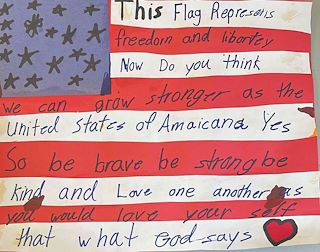 This Flag Represents
freedom and libortey
Now Do you think
we can grow stronger as the
United States of Amaicana Yes
So be brave be strong be
kind and Love one another as
you would love your self
that what God says